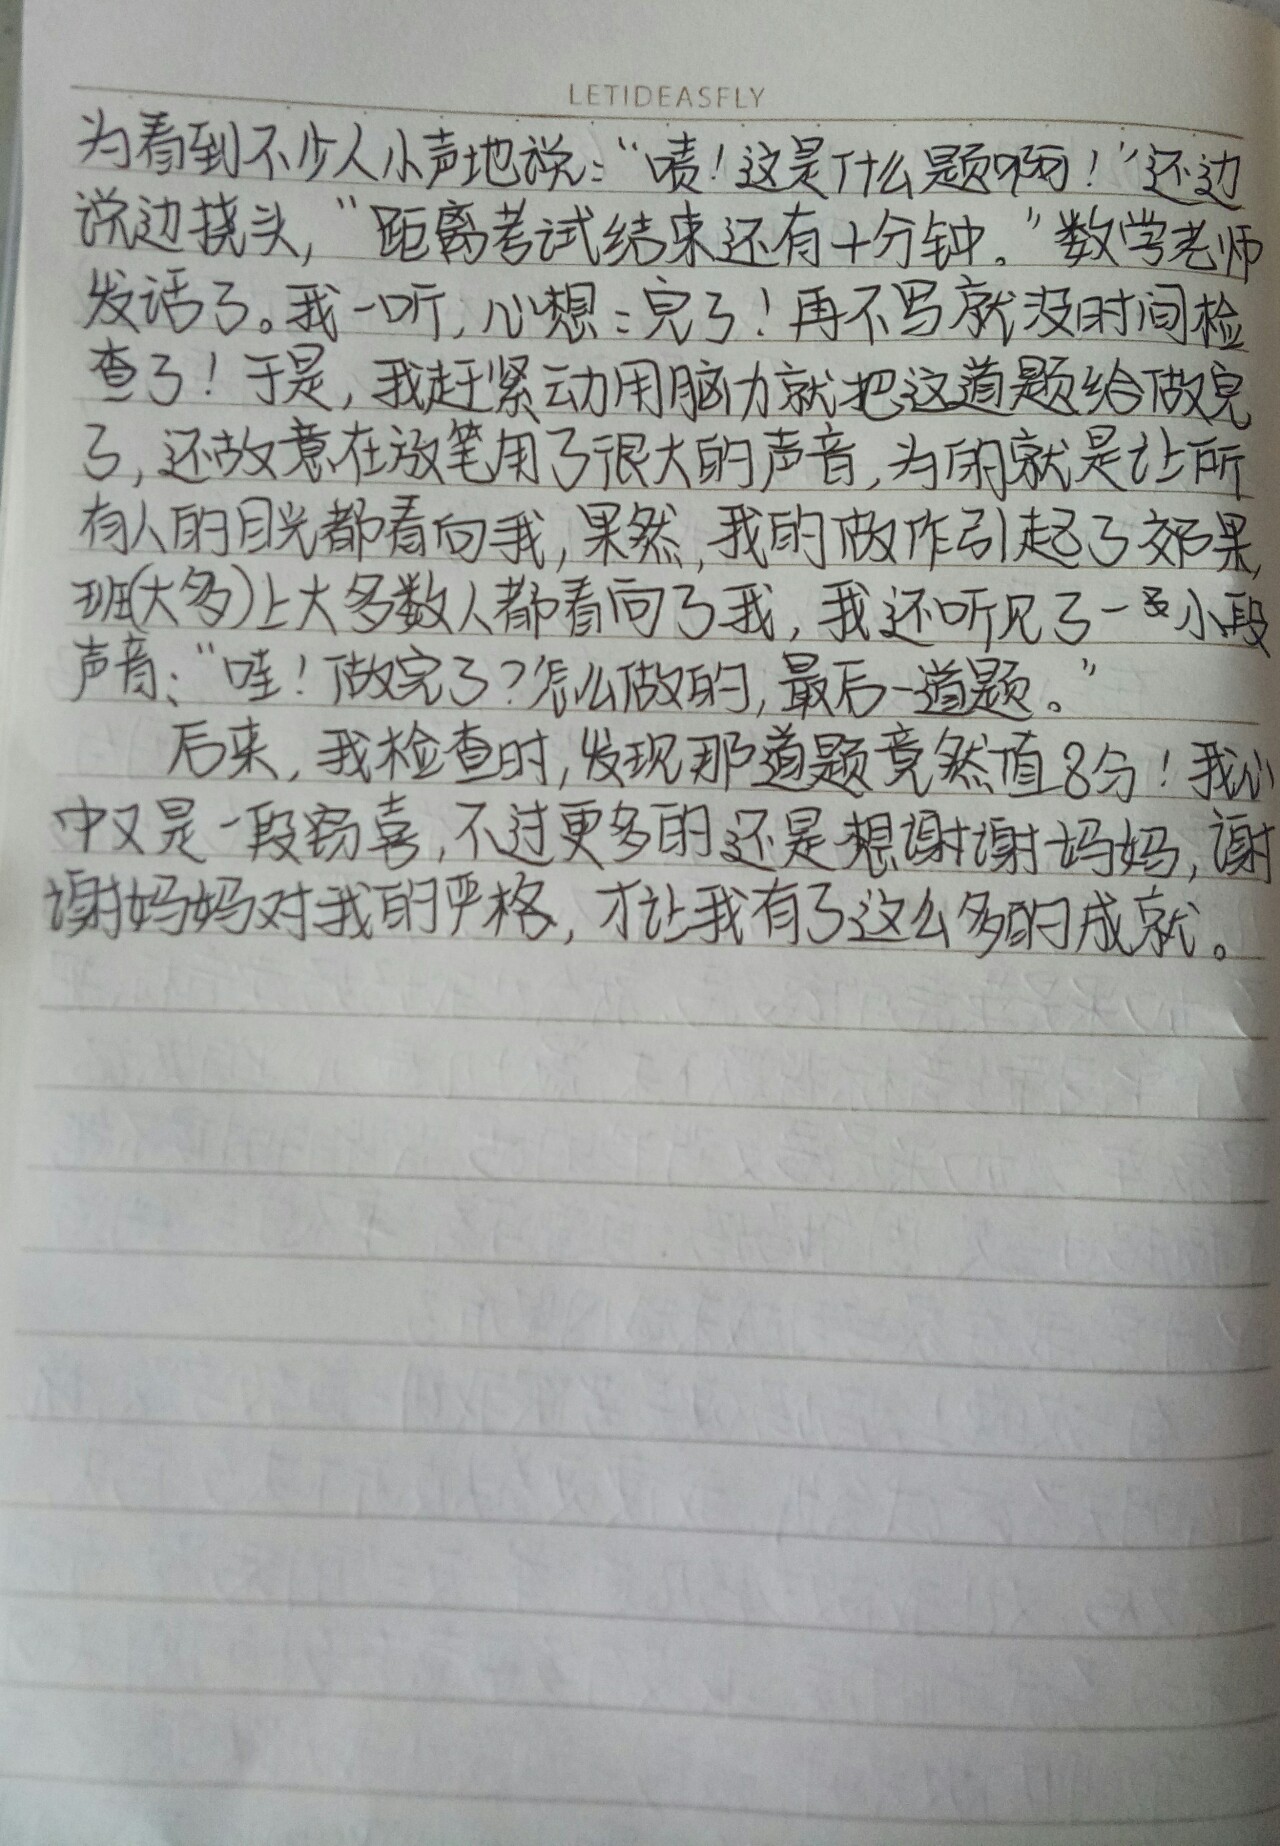 LETIDEASFLY
为看到不少人小声地说：“啧！这是什么题啊！”还边
说边挠头，“距离考试结束还有十分钟。”数学老师
发话了。我一听，心想：完了！再不写就没时间检
查了！于是，我赶紧动用脑力就把这道题给做完
了，还故意在放笔用了很大的声音，为的就是让所
有人的目光都看向我，果然，我的做作引起了效果，
班(大多)上大多数人都看向了我，我还听见了一小段
声音：“哇！做完了？怎么做的，最后一道题。”
后来，我检查时，发现那道题竟然值8分！我心
中又是一段窃喜，不过更多的还是想谢谢妈妈，谢
谢妈妈对我的严格，才让我有了这么多的成就。